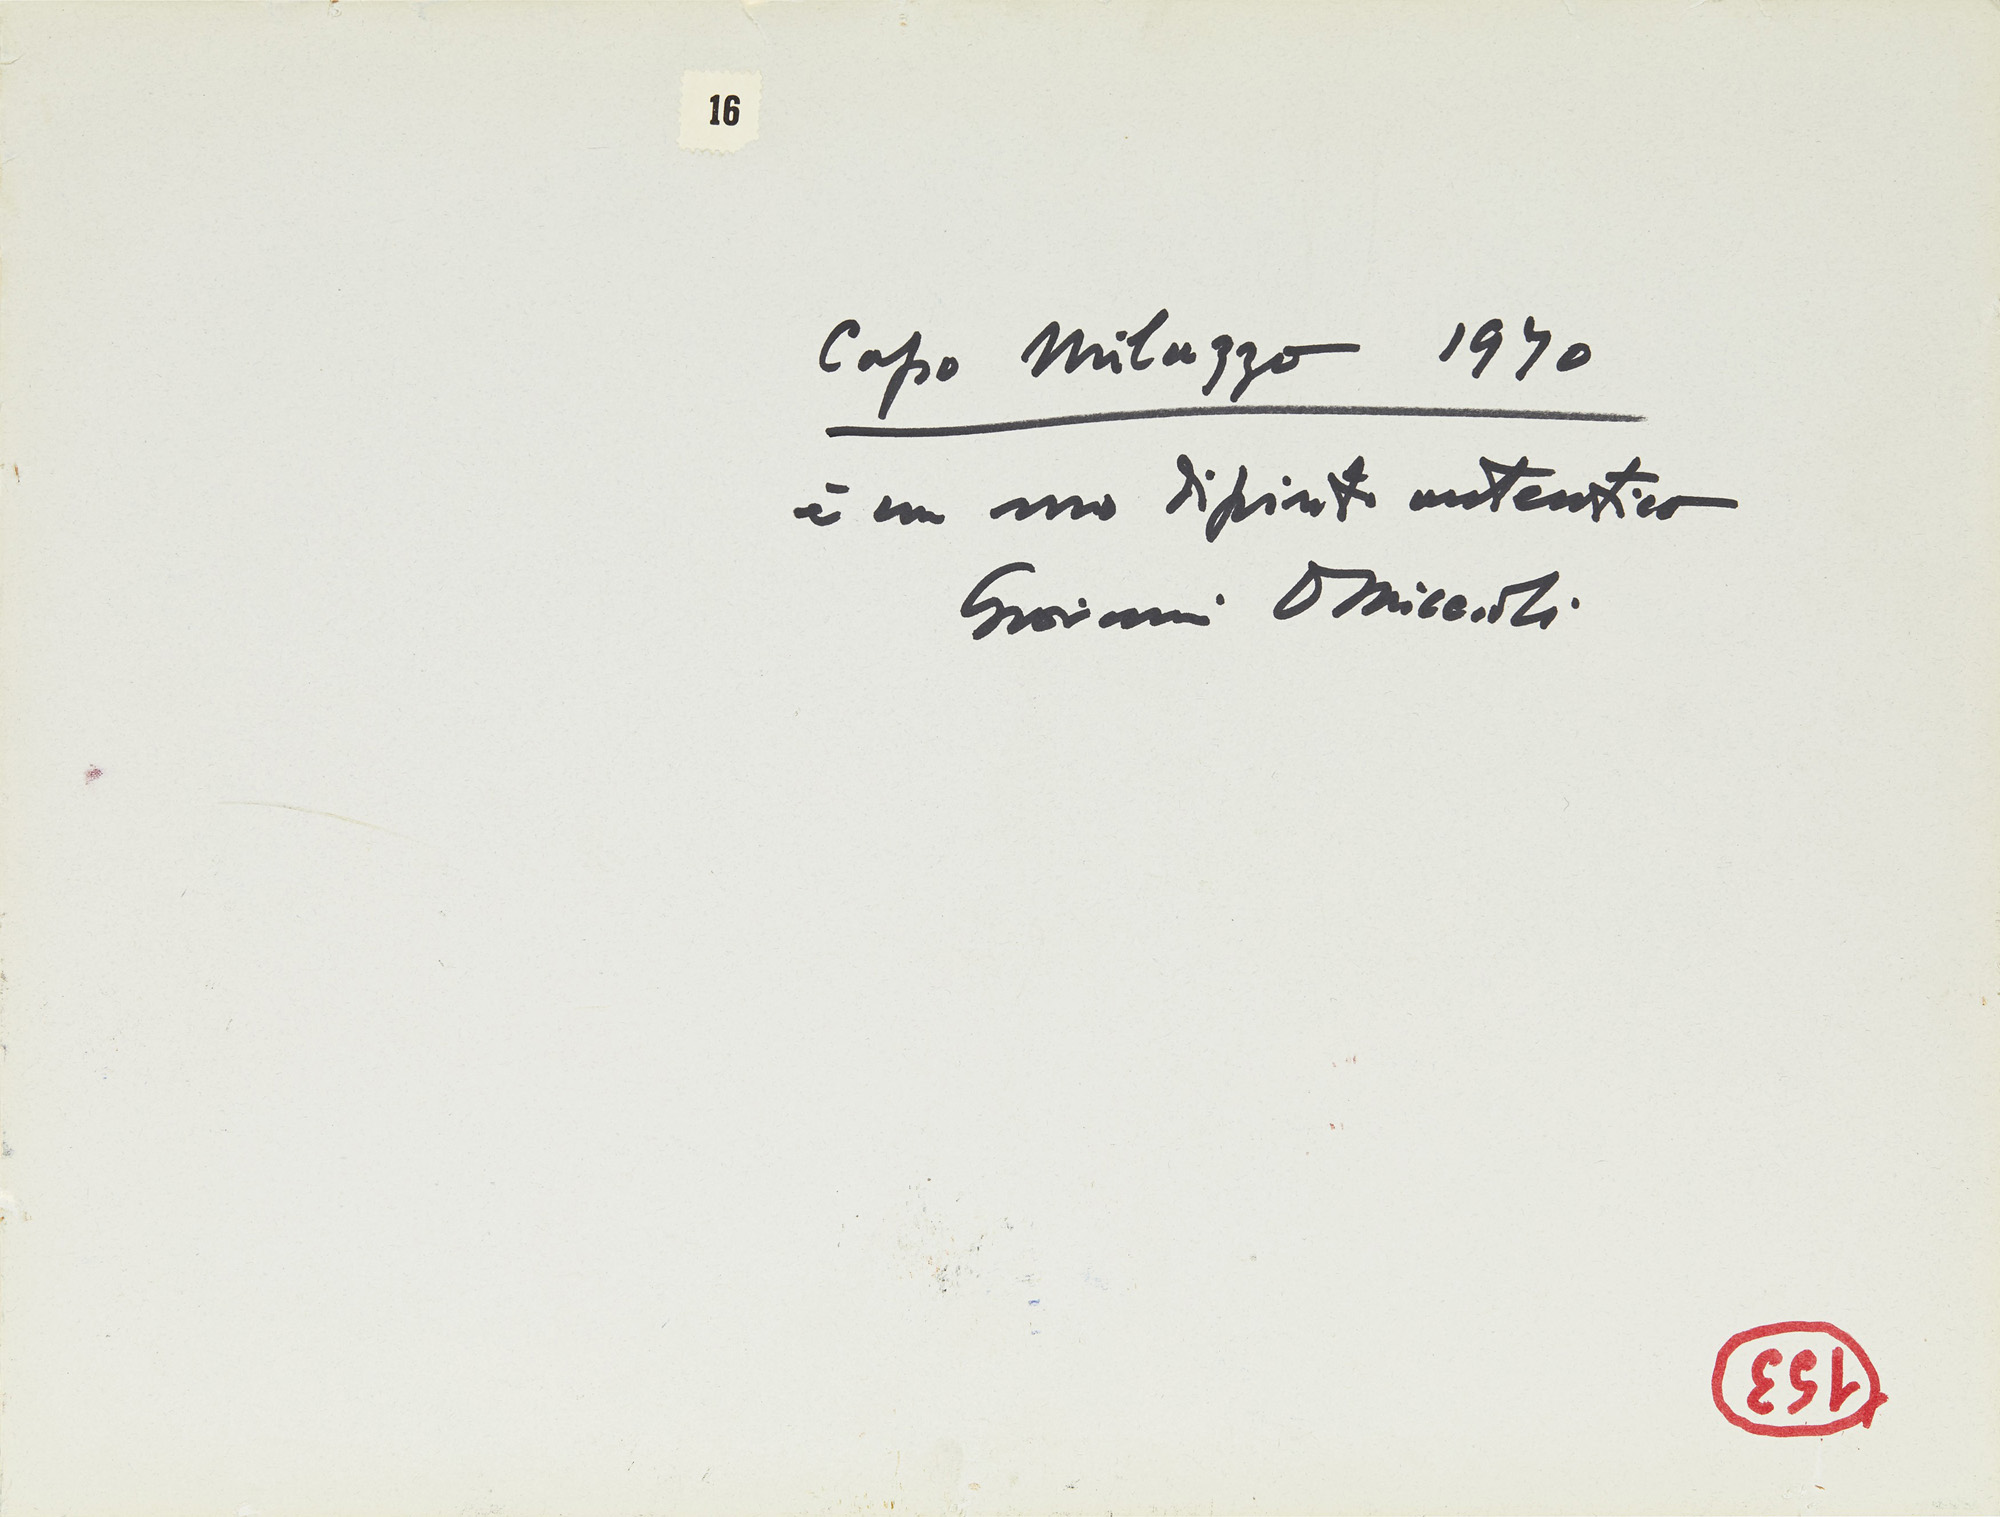 16
Capo Milazzo 1970
è un mio dipinto autentico
Giovanni OMiccioli
153